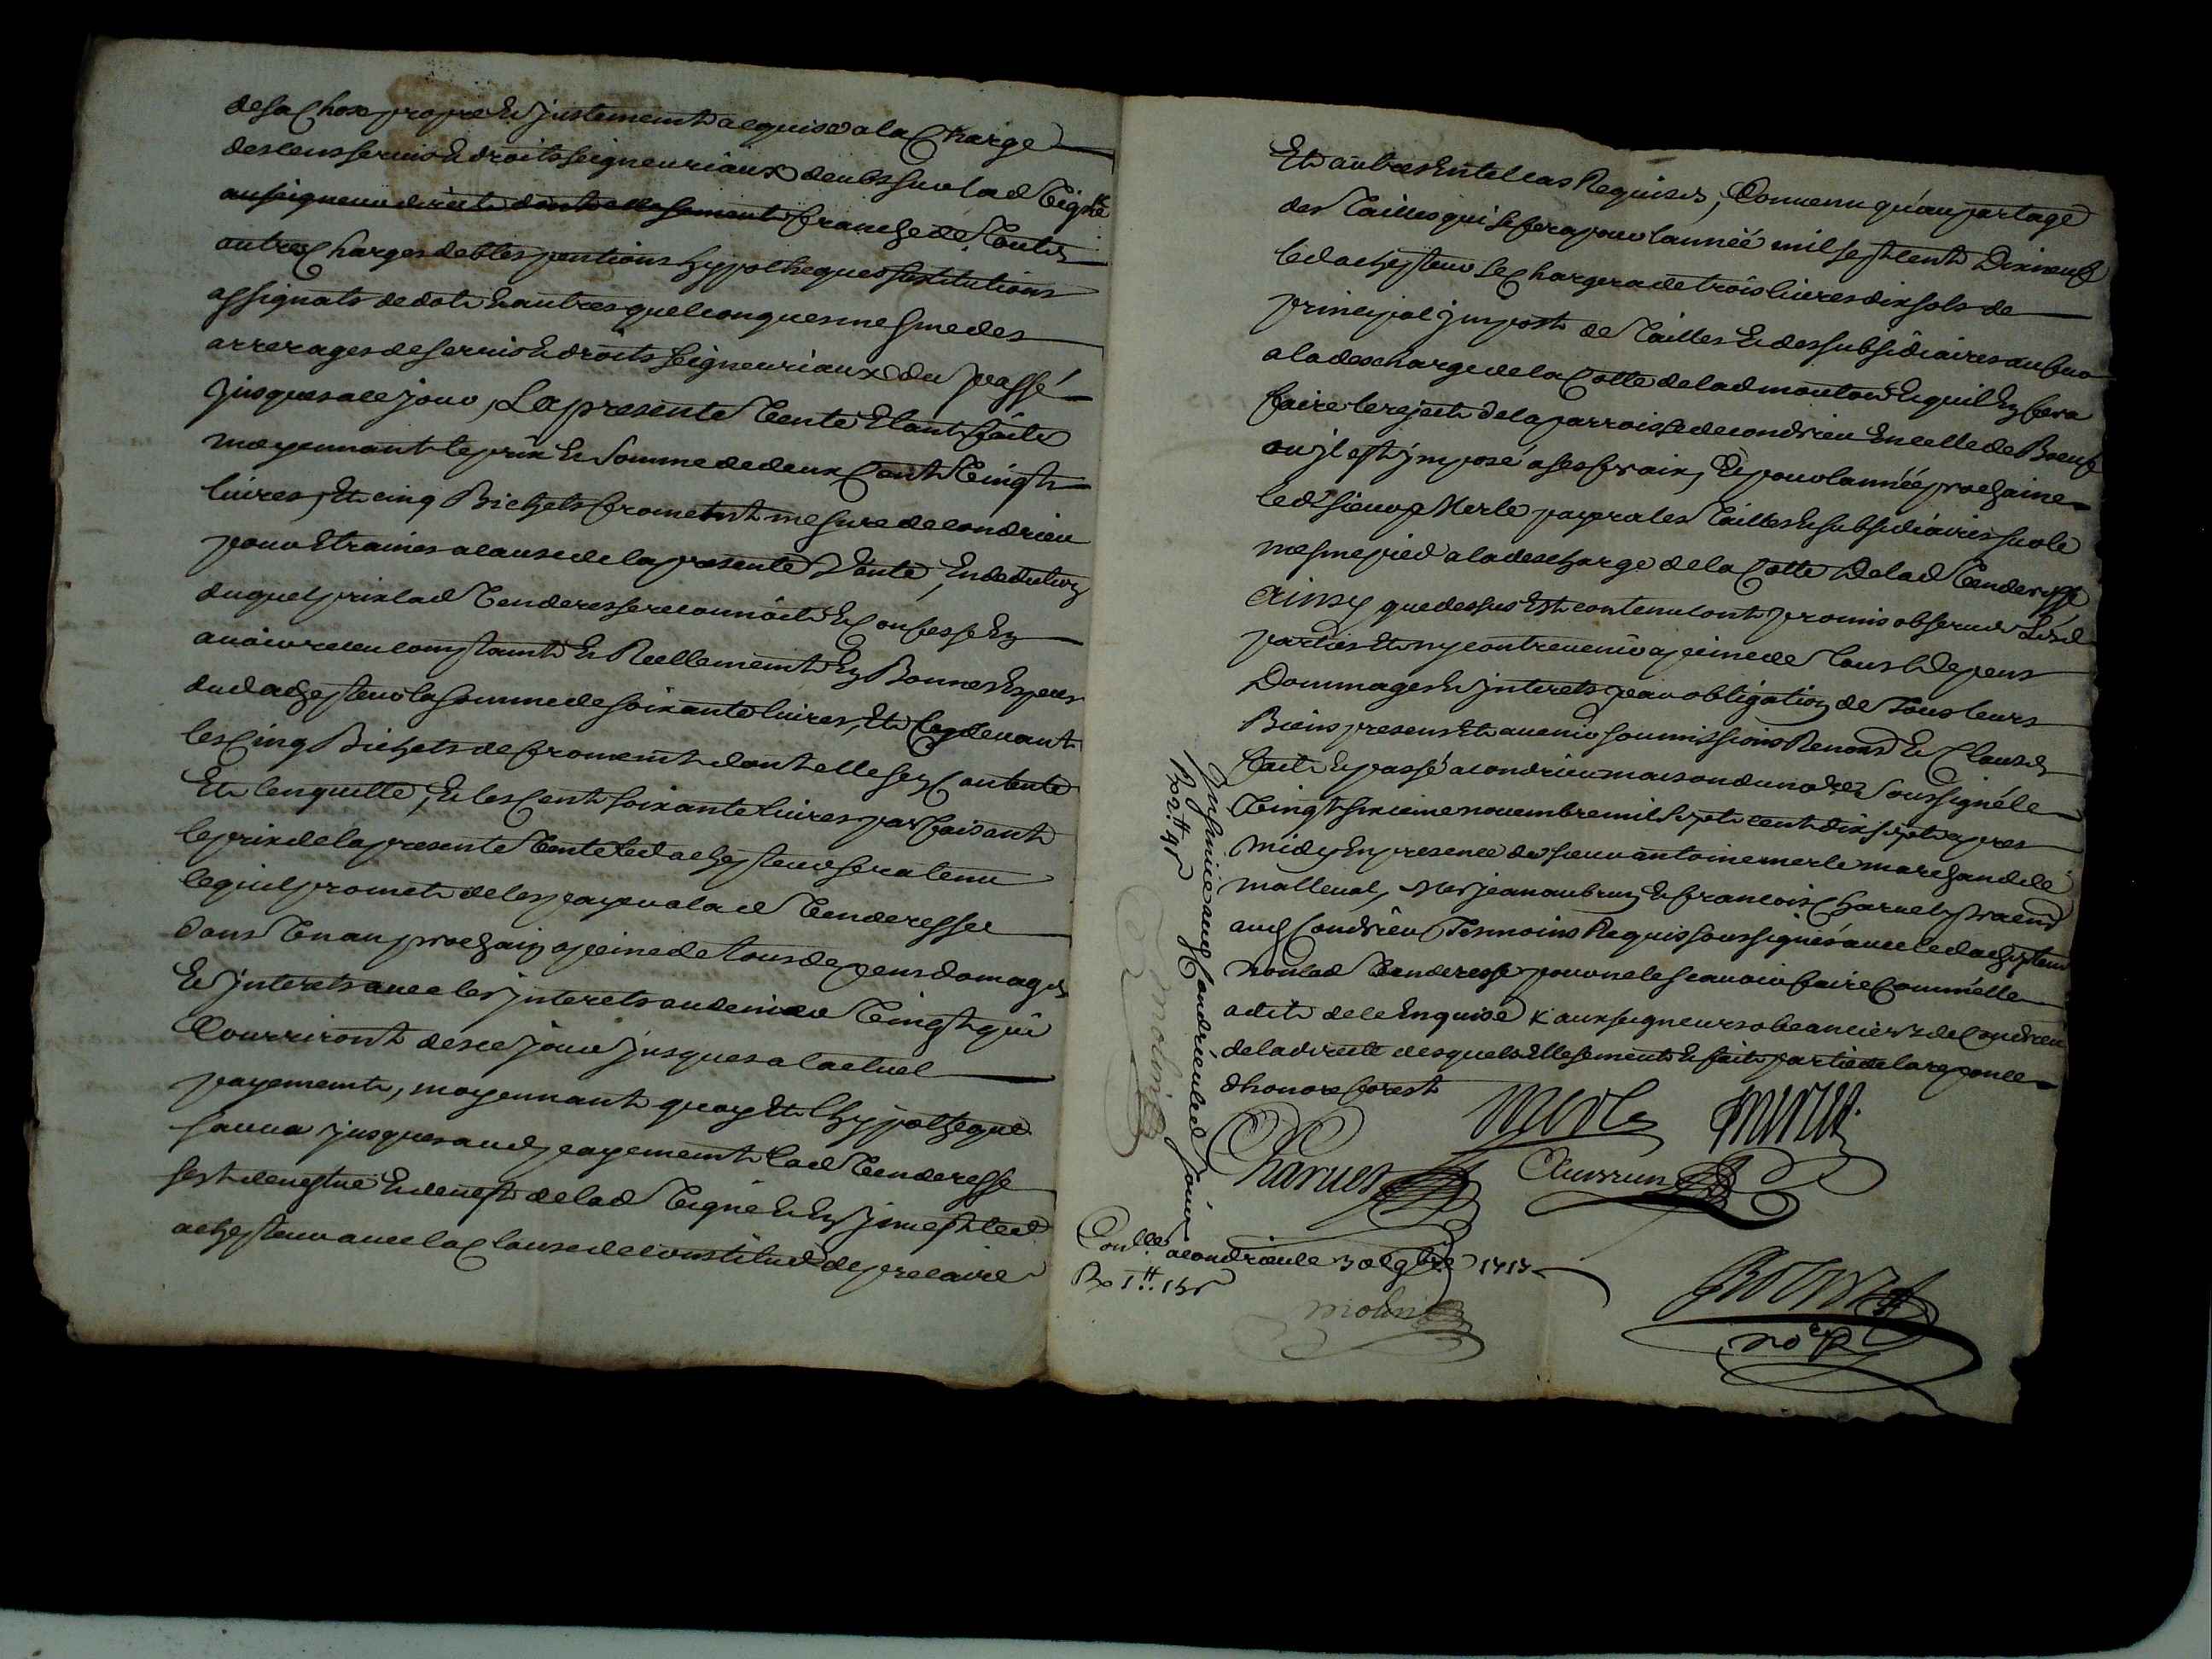 de sa Chose propre Et justement acquise a la Charge
des cens servis Et droits seigneuriaux deubs sur lad Vigne
au seigneur direct dont elle se meut franche de Toutes
autres Charges debtes pentions hyppotheques substitutions
assignats de dots Et autres quelconques mesme des
arrerages de servis Et droits seigneuriaux du passé
jusques a ce jour, La presente Vente Etant faite
moyennant le prix Et Somme de deux Cent Vingt
livres, Et cinq Bichets froment mesure de condrieu
pour Etraines a cause de la presente Vente, En deduction
duquel prix lad Venderesse reconnoit Et confesse En
avoir receu comptant Et Reellement En Bonnes Especes
dud achepteur la somme de soixante livres, Et Cy devant
les Cinq Bichets de froment dont elle s'en Contente
Et l'en quitte, Et les Cent soixante livres parfaisant
le prix de la presente Vente led achepteur sera tenu
le quil promet de les payer a lad Venderesse
dans Un an prochain a peine de tous depens domages
Et jnterets avec les jnterets au denier Vingt qui
Courriront des ce jour jusques a l'actuel
payement, moyennant quoy Et l'hyppotheque
sauva jusques aud payement lad Venderesse
s'est devestue Et devest de lad Vigne Et En jnvest led
achepteur avec la Clause de constitut de precaire
Et autres En tel cas Requises, Convenu qu'au partage
des Tailles qui se fera pour l'année mil sept cent Dixneuf
led achepteur se Chargera de trois livres dix sols de
principal jmpost de Tailles Et des subsidiaires au sur
a la descharge de la Cotte de lad mouton Et quil En fera
faire le rejet de la parroisse de condrieu En celle de Boeuf
ou jl est jmposé a ses fraix, Et pour l'année prochaine
led sieur Merle payera les Tailles Et subsidiaires sur le
mesme pied a la descharge de la Cotte de lad Venderesse
Ainsy que dessus Est contenu l'ont promis observer Lesd
parties Et ny contrevenir a peine de Tous Depens
Dommages Et jnterets par obligation de Tous leurs
Biens presens Et avenir soumissions Renond Et Clauses
fait Et passé a condrieu maison du nore Soussigné le
Vingt sixieme novembre mil sept cent dix sept apres
midy En presence de sieur antoine merle marchand de
malleval, Mes jean aubrun Et francois Charvet praticiens
aud Condrieu Tesmoins Requis soussignés avec led achepteur
non lad Venderesse pour ne le scavoir faire Comme elle
a dit de ce Enquise x aux seigneurs obeanciers de Condrieu
de la directe desquels Elle se meut Et fait partie de la reponce
d'honoré forest
Merle Merle
Charvet Aubrun
Conllé a condrieu le 30e 9bre 1717
Rx 1tt 15s
molin
nore
Jnsinué aud Condrieu led jour
Rx 2tt 4s
molin